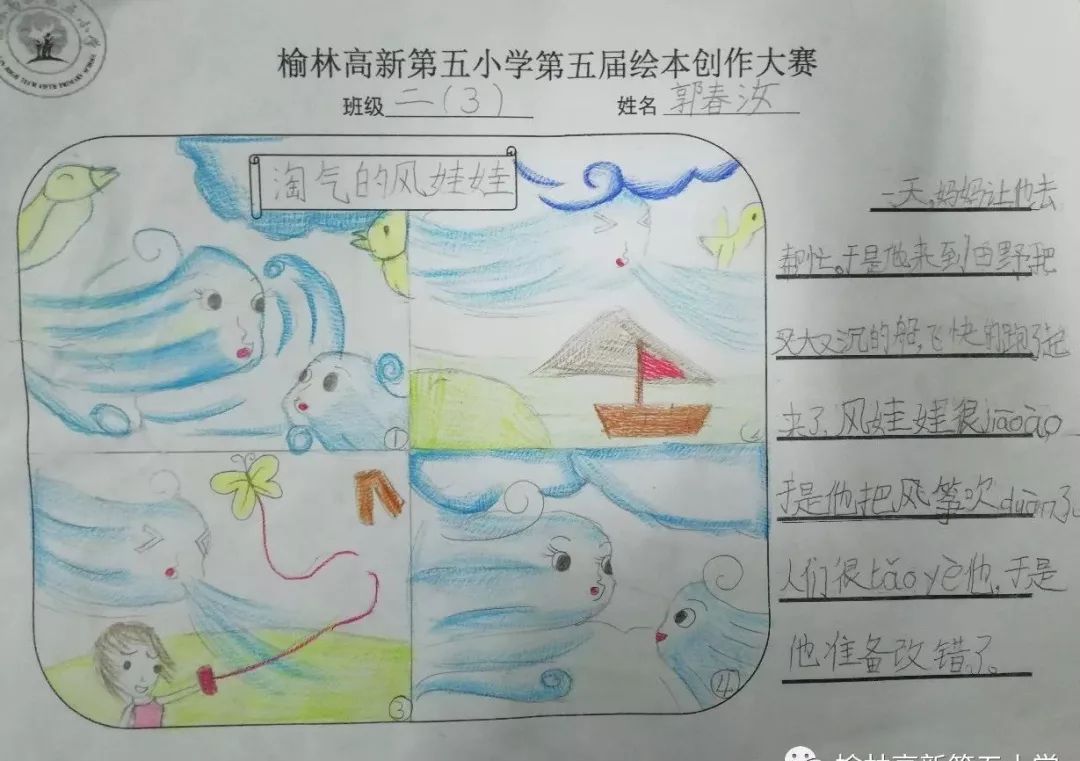 榆林高新第五小学第五届绘本创作大赛
班级 二(3) 姓名 郭春汝
淘气的风娃娃
一天,妈妈让他去
帮忙。于是他来到田野把
又大又沉的船,飞快的跑了起
来了,风娃娃很jiāoào,
于是他把风筝吹duàn了。
人们很tǎo yè他,于是
他准备改错了。
①
②
③
④
榆林高新第五小学